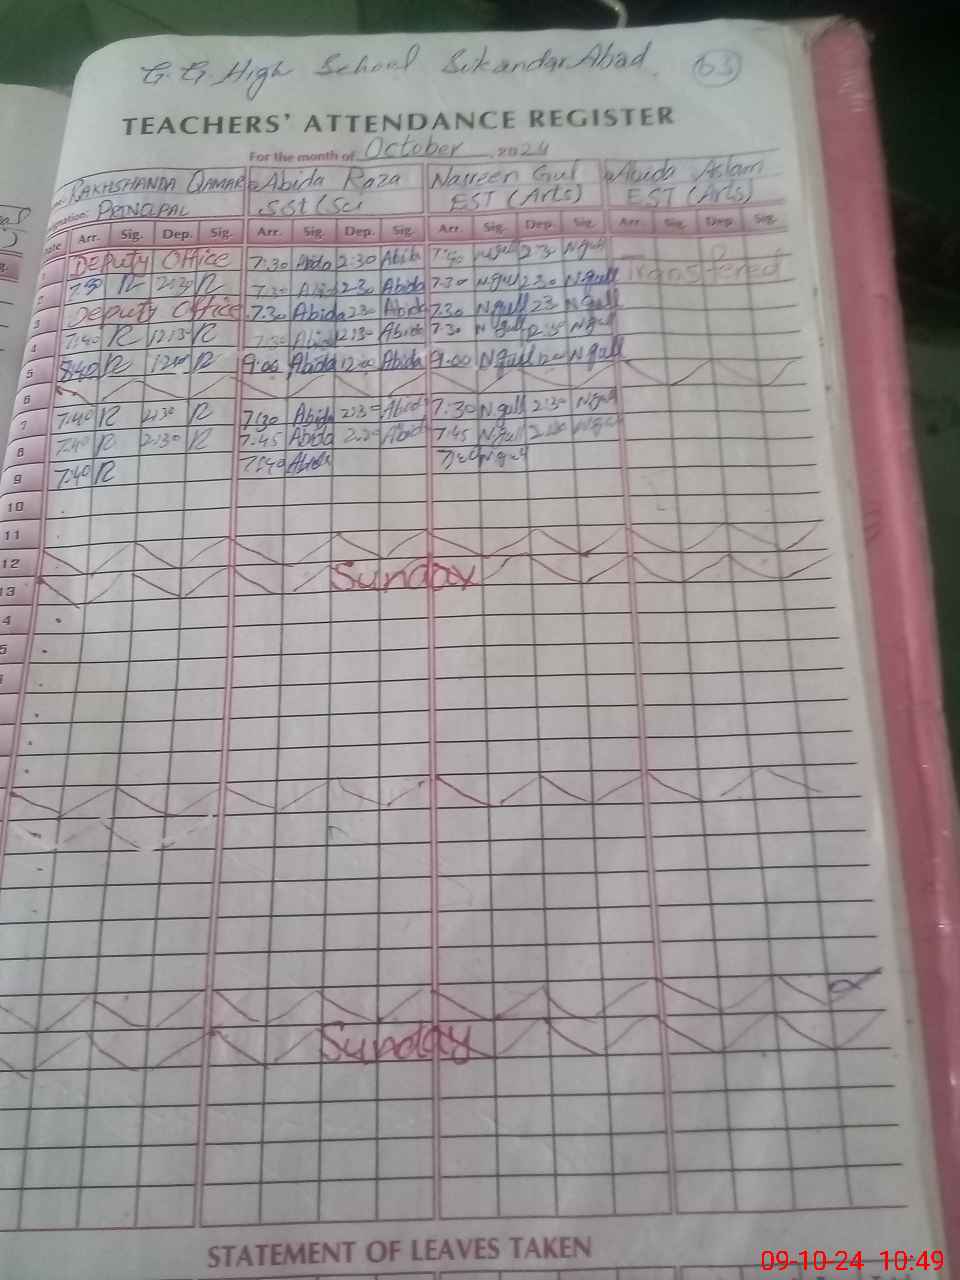 G.G. High School SikandarAbad. 63
TEACHERS' ATTENDANCE REGISTER
For the month of October, 2024
RAKHSHANDA QAMAR Abida Raza Nasreen Gul Abida Aslam
PRINCIPAL SST (Sci EST (Arts) EST (Arts)
Arr. Sig. Dep. Sig. Arr. Sig. Dep. Sig. Arr. Sig. Dep. Sig. Arr. Sig. Dep. Sig.
1 DEPUTY OFFICE 7:30 Abida 2:30 Abida Ngull 2:30 Ngull Transfered
2 R R 7:30 Abida 2:30 Abida 7:30 Ngull 2:30 Ngull
3 DEPUTY OFFICE 7:30 Abida 2:30 Abida 7:30 Ngull 23 Ngull
4 7:40 R 12:30 R 7:30 Abida 12:30 Abida 7:30 Ngull 12:30 Ngull
5 8:40 R R 9:00 Abida 12:00 Abida 9:00 Ngull Ngull
6
7 7:40 R 2:30 R 7:30 Abida 2:30 Abida 7:30 Ngull 2:30 Ngull
8 7:40 R 2:30 R 7:45 Abida Abida 7:45 Ngull Ngull
9 7:40 R 7:40 Abida Ngull
10
11
12
13 Sunday
4
5
Sunday
STATEMENT OF LEAVES TAKEN
09-10-24 10:49